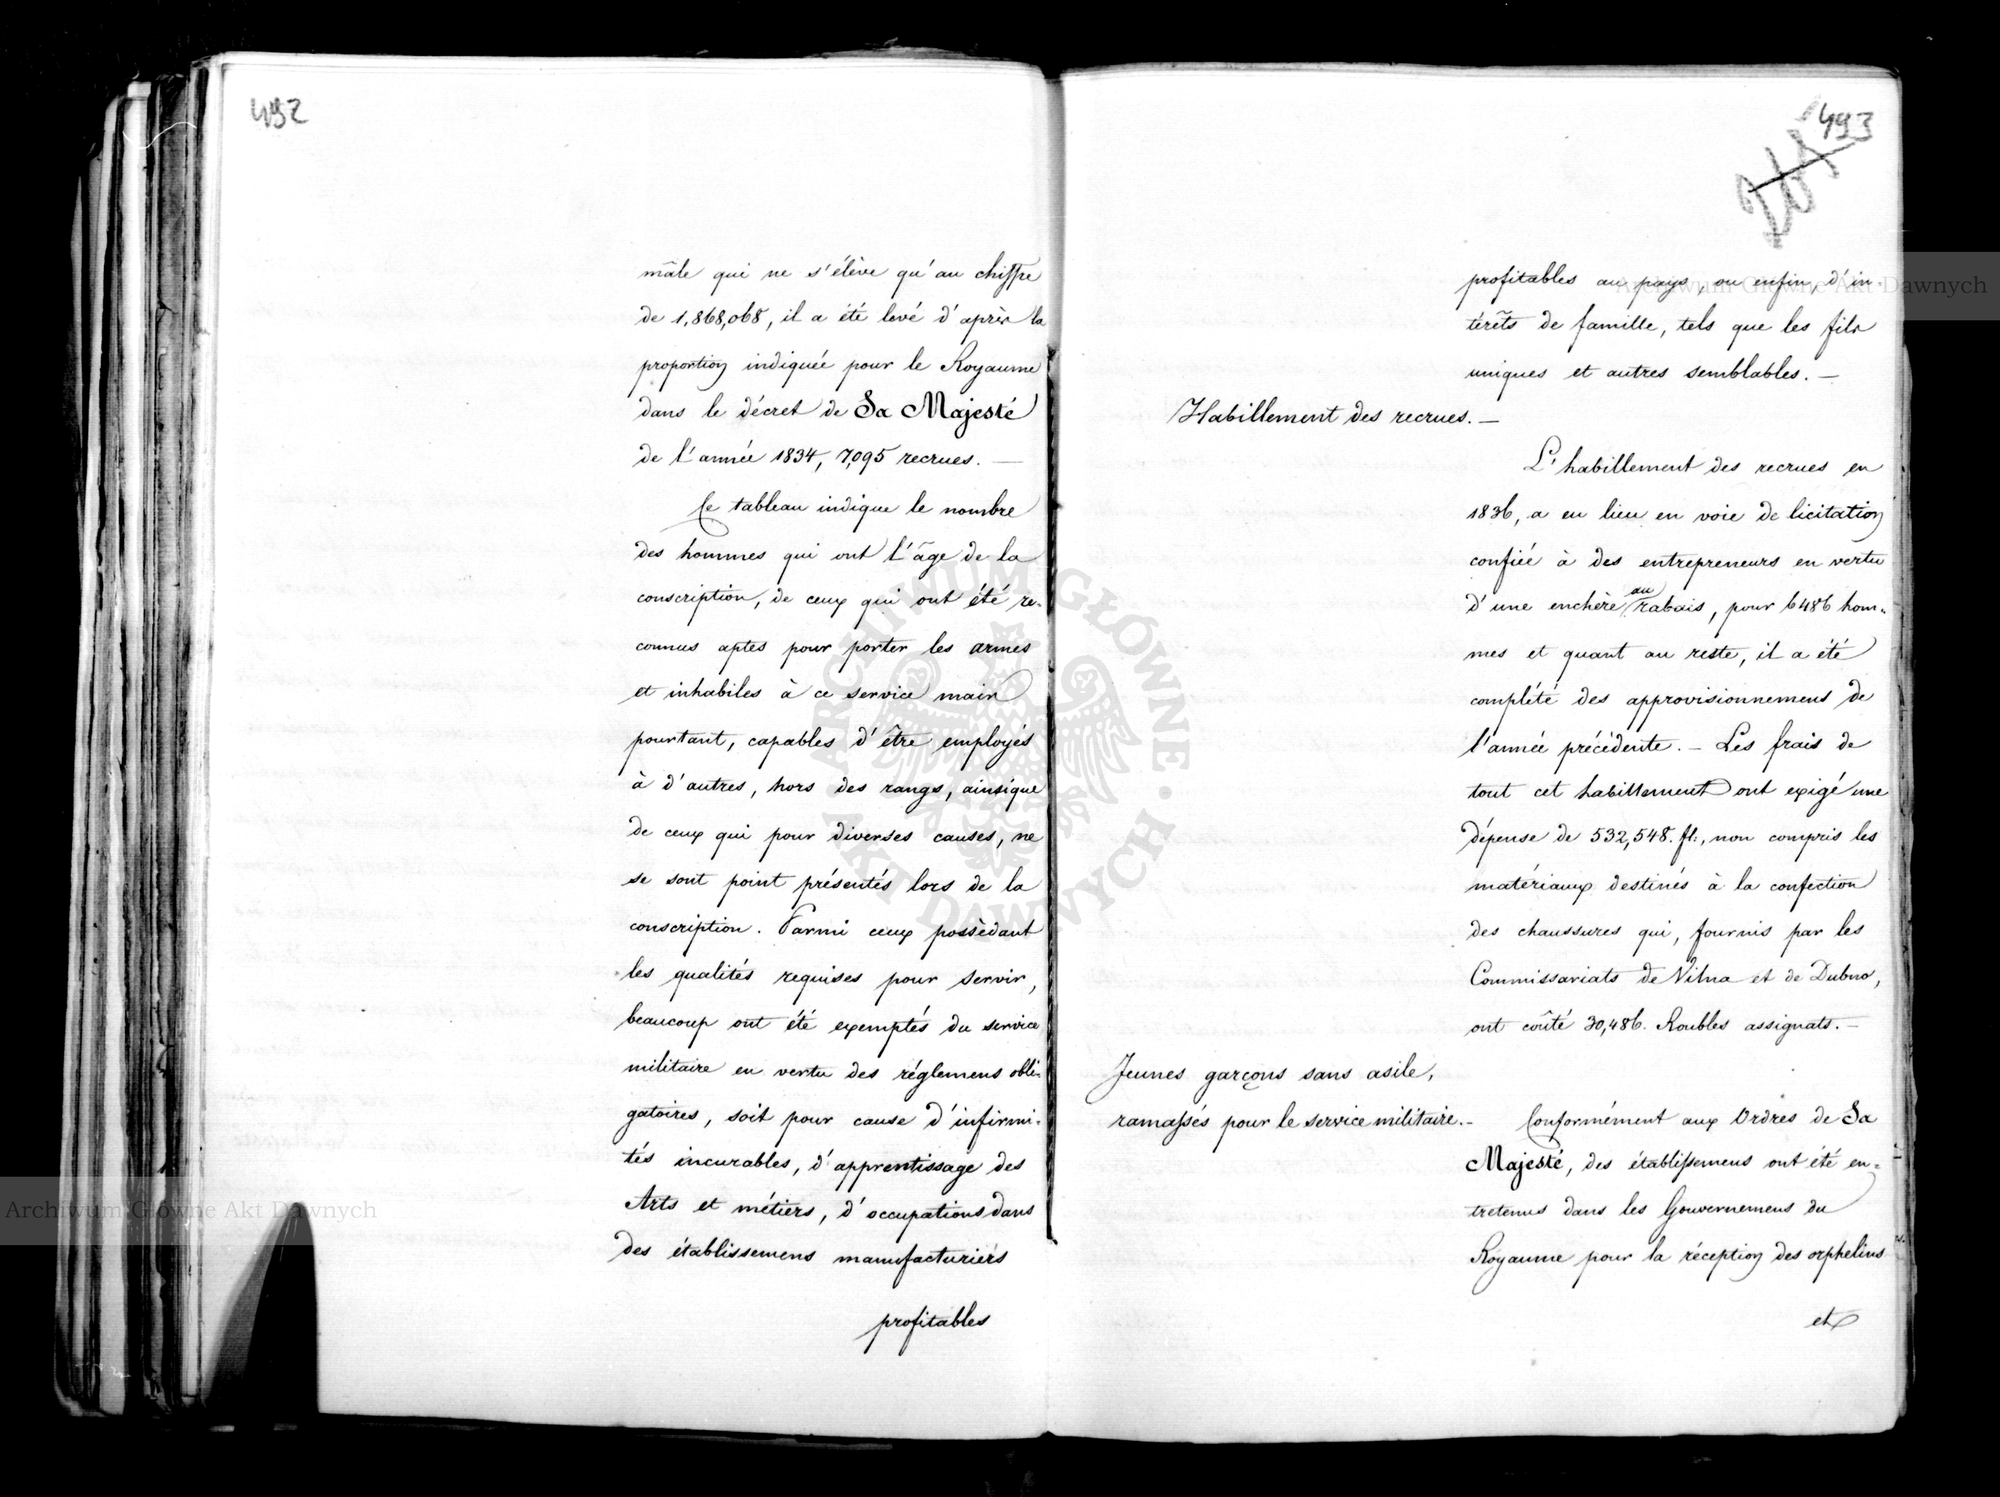 492
mâle qui ne s'élève qu'au chiffre
de 1,868,068, il a été levé d'après la
proportion indiquée pour le Royaume
dans le décret de Sa Majesté
de l'année 1834, 7,095 recrues. —
Ce tableau indique le nombre
des hommes qui ont l'âge de la
conscription, de ceux qui ont été re-
connus aptes pour porter les armes
et inhabiles à ce service mais
pourtant, capables d'être employés
à d'autres, hors des rangs, ainsique
de ceux qui pour diverses causes, ne
se sont point présentés lors de la
conscription. Parmi ceux possèdant
les qualités requises pour servir,
beaucoup ont été exemptés du service
militaire en vertu des réglemens obli-
gatoires, soit pour cause d'infirmi-
tés incurables, d'apprentissage des
Arts et métiers, d'occupations dans
des établissemens manufacturiers
profitables
493
profitables au pays, ou enfin, d'in-
térêts de famille, tels que les fils
uniques et autres semblables. —
Habillement des recrues. —
L'habillement des recrues en
1836, a eu lieu en voie de licitation
confiée à des entrepreneurs en vertu
d'une enchère au rabais, pour 6486 hom-
mes et quant au reste, il a été
complété des approvisionnemens de
l'année précédente. — Les frais de
tout cet habillement ont exigé une
dépense de 532,548. fl:, non compris les
matériaux destinés à la confection
des chaussures qui, fournis par les
Commissariats de Vilna et de Dubno,
ont coûté 30,486. Roubles assignats. —
Jeunes garçons sans asile,
ramassés pour le service militaire. —
Conformément aux Ordres de Sa
Majesté, des établissemens ont été en-
tretenus dans les Gouvernemens du
Royaume pour la réception des orphelins
et
Archiwum Główne Akt Dawnych
Archiwum Główne Akt Dawnych
ARCHIWUM GŁÓWNE AKT DAWNYCH